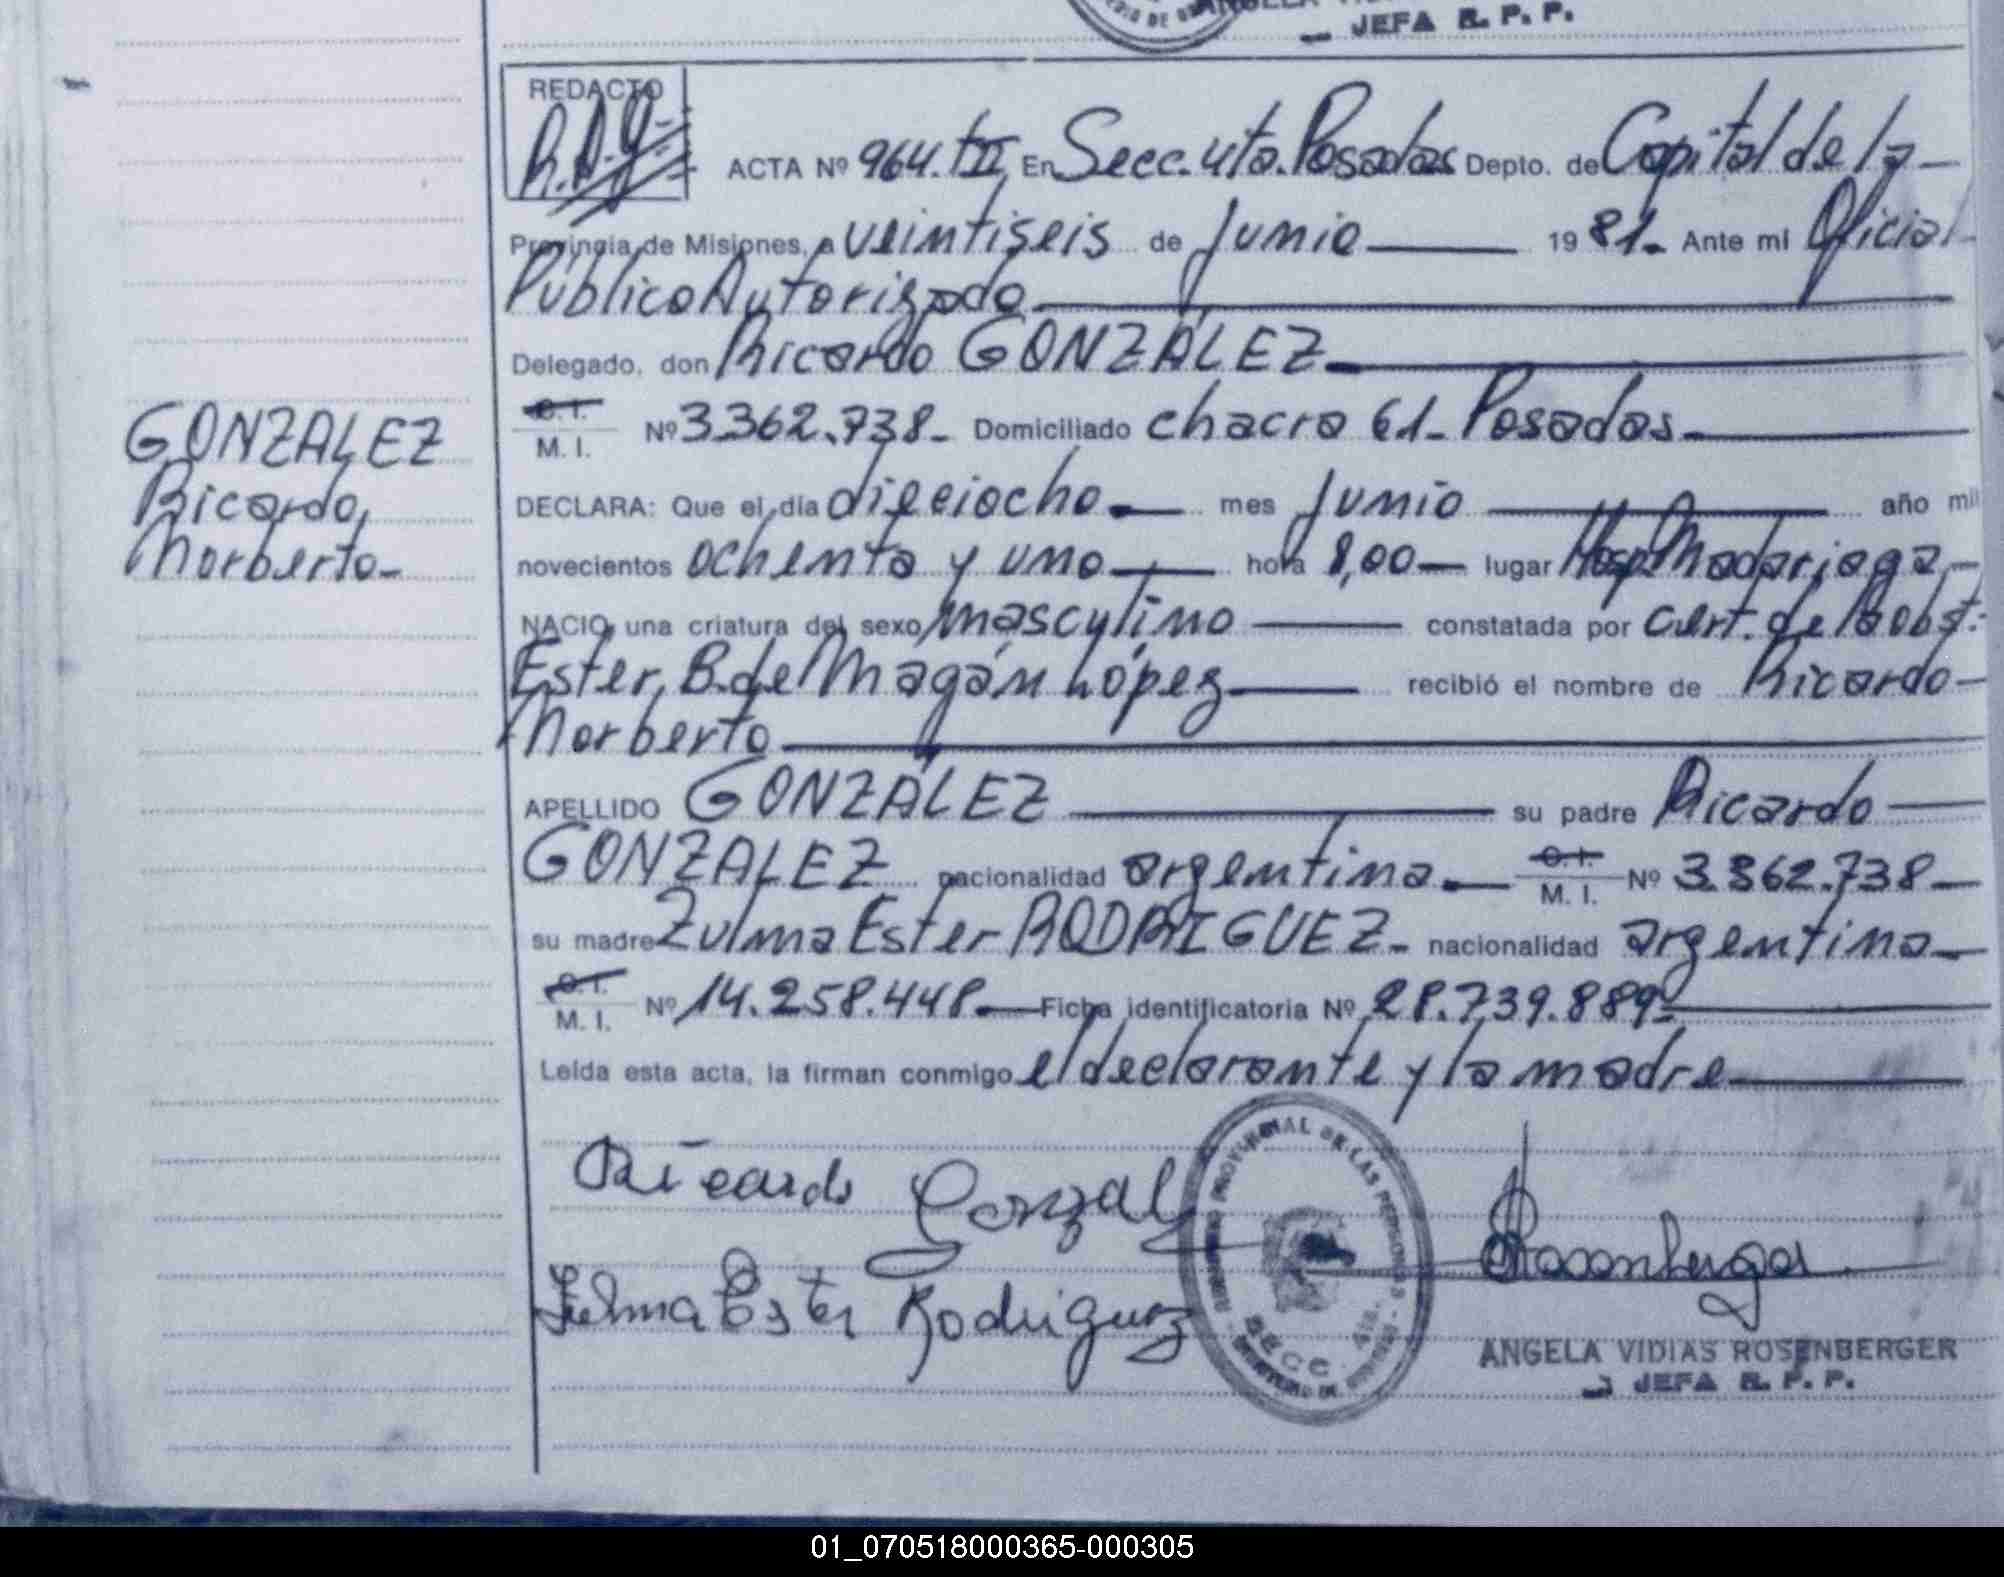 JEFA R. P. P.
REDACTO
ACTA Nº 964. TII En Secc. 4ta. Posadas Depto. de Capital de la
Provincia de Misiones, a veintiseis de Junio 19 81. Ante mi Oficial
Público Autorizado
Delegado, don Ricardo GONZÁLEZ
C.I.
M. I. Nº 3.362.738 Domiciliado chacra 61 Posadas
GONZALEZ
Ricardo
Norberto
DECLARA: Que el dia dieciocho mes Junio año mil
novecientos ochenta y uno hora 8,00 lugar Hosp. Madariaga
NACIO una criatura del sexo masculino constatada por cert. de la obst.
Ester B. de Magán López recibió el nombre de Ricardo
Norberto
APELLIDO GONZÁLEZ su padre Ricardo
GONZALEZ nacionalidad argentina C.I. M. I. Nº 3.362.738
su madre Zulma Ester RODRIGUEZ nacionalidad argentina
C.I.
M. I. Nº 14.258.448 Ficha identificatoria Nº 28.739.889
Leida esta acta, la firman conmigo el declarante y la madre
Ricardo Gonzal
Zulma Ester Rodriguez
PROVINCIAL DE LAS PERSONAS
SECC. 4ta.
Rosenberger
ANGELA VIDIAS ROSENBERGER
JEFA R. P. P.
01_070518000365-000305